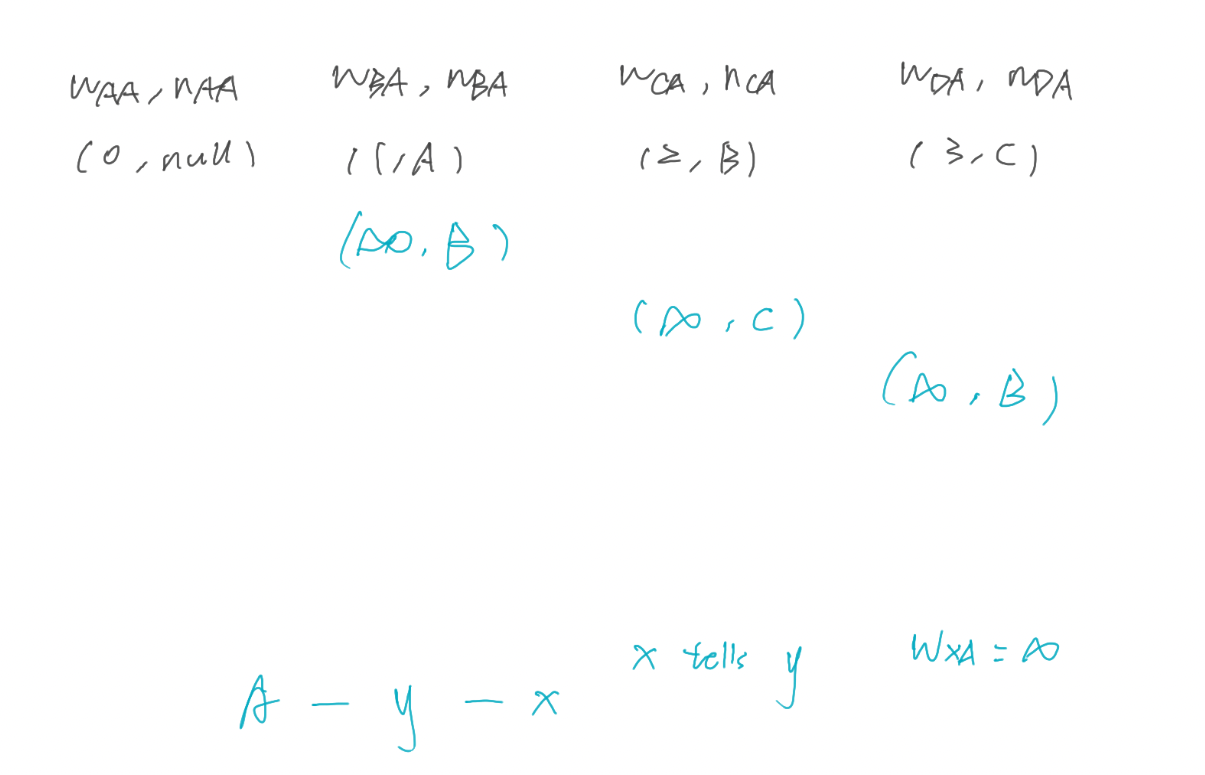 WAA, nAA WBA, nBA WCA, nCA WDA, nDA
(0, null) (1, A) (2, B) (3, C)
(∞, B)
(∞, C)
(∞, B)
x tells y WxA = ∞
A — y — x